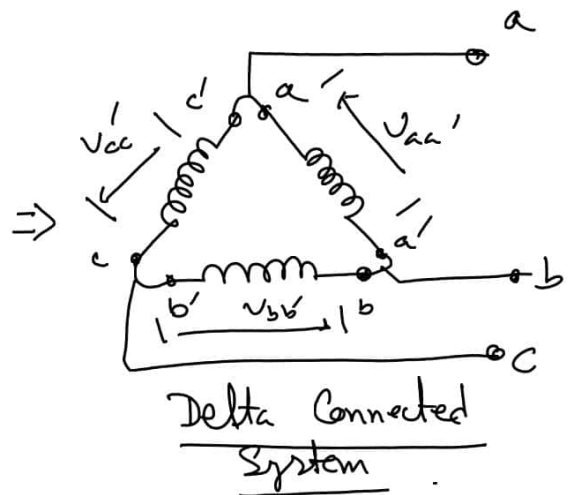 a
c' a
Vcc' Vaa'
⇒
c a'
b' Vbb' b b
C
Delta Connected
System